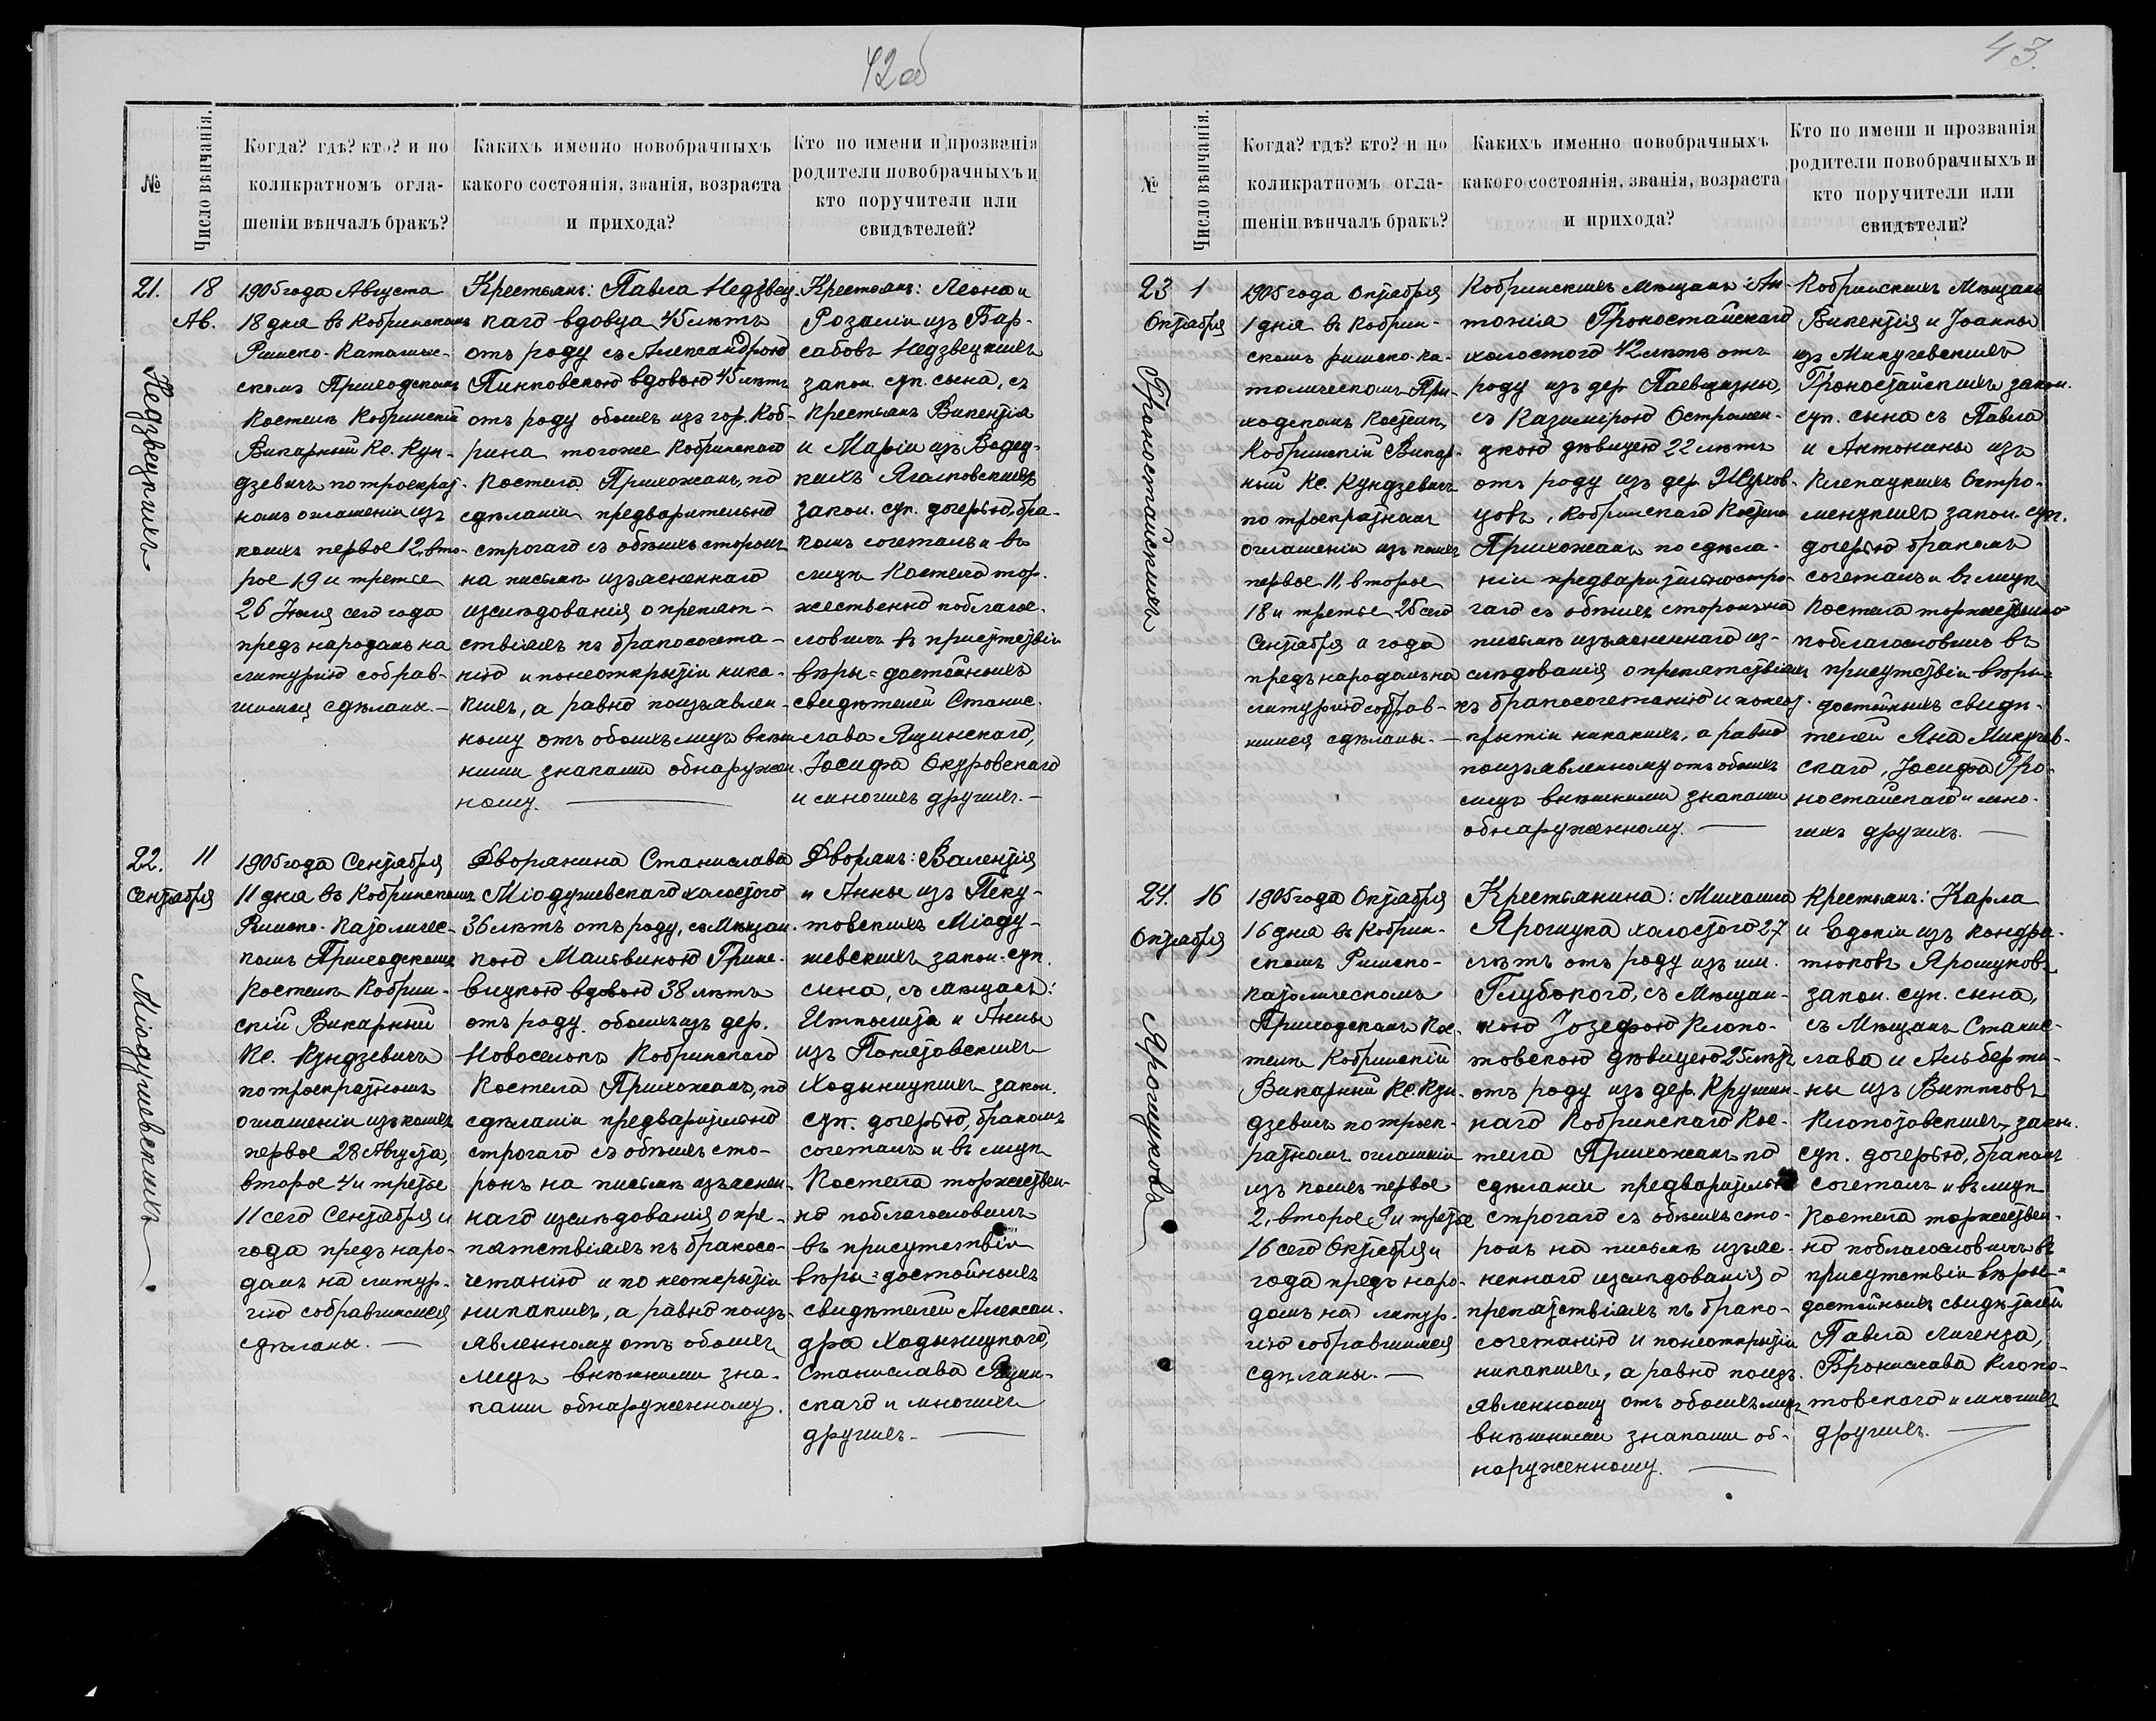 42об
№
Число вѣнчанія.
Когда? гдѣ? кто? и по
коликратномъ огла-
шеніи вѣнчалъ бракъ?
Какихъ именно новобрачныхъ
какого состоянія, званія, возраста
и прихода?
Кто по имени и прозванія
родители новобрачныхъ и
кто поручители или
свидѣтелей?
21.
18
Ав.
Недзвецкихъ
1905 года Августа
18 дня въ Кобринскомъ
Римско-Католиче-
скомъ Приходскомъ
Костелѣ Кобринскій
Викарный Кс. Кун-
дзевичъ по троекрат-
номъ оглашеніи изъ
коихъ первое 12, вто-
рое 19 и третье
26 Іюля сего года
предъ народомъ на
литургію собрав-
шимся сдѣланы.-
Крестьянъ: Павла Недзвец-
каго вдовца 45 лѣтъ
отъ роду съ Александрою
Пинковскою вдовою 45 лѣтъ
отъ роду обоихъ изъ гор. Коб-
рина тогоже Кобринскаго
Костела Прихожанъ, по
сдѣланіи предварительно
строгаго съ обѣихъ сторонъ
на письмѣ изъясненнаго
изслѣдованія о препят-
ствіяхъ къ бракосочета-
нію и по неоткрытіи ника-
кихъ, а равно по изъявлен-
ному отъ обоихъ лицъ внѣш
ними знаками обнаружен
ному.
Крестьянъ: Леона и
Розаліи изъ Вар-
сабовъ Недзвецкихъ
закон. суп. сына, съ
Крестьянъ Викентія
и Маріи изъ Водец-
кихъ Яголковскихъ
закон. суп. дочерью, бра-
комъ сочеталъ и въ
лицѣ Костела тор-
жественно поблагос-
ловилъ въ присутствіи
вѣры=достойныхъ
свидѣтелей Станис-
лава Ящинскаго,
Іосифа Окуровскаго
и многихъ другихъ.-
22.
11
Сентября
Міодушевскихъ
1905 года Сентября
11 дня въ Кобринскомъ
Римско-Католичес-
комъ Приходскомъ
Костелѣ Кобрин-
скій Викарный
Кс. Кундзевичъ
по троекратномъ
оглашеніи изъ коихъ
первое 28 Августа,
второе 4 и третье
11 сего Сентября и
года предъ наро-
домъ на литур-
гію собравшимся
сдѣланы.-
Дворянина Станислава
Міодушевскаго холостого
36 лѣтъ отъ роду, съ Мѣщан-
кою Мальвиною Грине-
вицкою вдовою 38 лѣтъ
отъ роду обоихъ изъ дер.
Новоселокъ Кобринскаго
Костела Прихожанъ, по
сдѣланіи предварительно
строгаго съ обѣихъ сто-
ронъ на письмѣ изъяснен-
наго изслѣдованія о пре-
пятствіяхъ къ бракосо-
четанію и по неоткрытіи
никакихъ, а равно по изъ-
явленному отъ обоихъ
лицъ внѣшними зна-
ками обнаруженному.
Дворянъ: Валентія
и Анны изъ Пеку-
товскихъ Міоду-
шевскихъ закон. суп.
сына, съ мѣщанъ:
Ипполита и Анны
изъ
Ходыницкихъ закон.
суп. дочерью, бракомъ
сочеталъ и въ лицѣ
Костела торжествен-
но поблагословилъ
въ присутствіи
вѣры=достойныхъ
свидѣтелей Алексан-
дра Ходыницкаго,
Станислава Ящин-
скаго и многихъ
другихъ.-
43.
№
Число вѣнчанія.
Когда? гдѣ? кто? и по
коликратномъ огла-
шеніи вѣнчалъ бракъ?
Какихъ именно новобрачныхъ
какого состоянія, званія, возраста
и прихода?
Кто по имени и прозванія
родители новобрачныхъ и
кто поручители или
свидѣтели?
23
1
Октября
Гроностайскихъ
1905 года Октября
1 дня въ Кобрин-
скомъ римско-ка-
толическомъ При-
ходскомъ Костелѣ
Кобринскій Викар-
ный Кс. Кундзевичъ
по троекратномъ
оглашеніи изъ коихъ
первое 11, второе
18 и третье 25 сего
Сентября и года
предъ народомъ на
литургію собрав-
шимся сдѣланы.-
Кобринскихъ Мѣщанъ: Ан-
тонія Гроностайскаго
холостого 42 лѣтъ отъ
роду изъ дер. Паевщизны,
съ Казимірою Остромен-
цкою дѣвицею 22 лѣтъ
отъ роду изъ дер. Жухов-
цовъ, Кобринскаго Костела
Прихожанъ по сдѣла-
ніи предварительно стро-
гаго съ обѣихъ сторонъ на
письмѣ изъясненнаго из-
слѣдованія о препятствіяхъ
къ бракосочетанію и по неот-
крытіи никакихъ, а равно
по изъявленному отъ обоихъ
лицъ внѣшними знаками
обнаруженному.
Кобринскихъ Мѣщанъ
Викентія и Іоанны
изъ Микучевскихъ
Гроностайскихъ закон.
суп. сына съ Павла
и Антонины изъ
Клепацкихъ Остро-
менцкихъ закон. суп.
дочерью бракомъ
сочеталъ и въ лицѣ
Костела торжественно
поблагословилъ въ
присутствіи вѣры=
достойныхъ свидѣ-
телей Яна Микучев-
скаго, Іосифа Гро-
ностайскаго и мно-
гихъ другихъ.
24.
16
Октября
Ярошукова
1905 года Октября
16 дня въ Кобрин-
скомъ Римско-
Католическомъ
Приходскомъ Кос-
телѣ Кобринскій
Викарный Кс. Кун-
дзевичъ по троек-
ратномъ оглашеніи
изъ коихъ первое
2, второе 9 и третье
16 сего Октября и
года предъ наро-
домъ на литур-
гію собравшимся
сдѣланы.-
Крестьянина: Михаила
Ярошука холостого 27
лѣтъ отъ роду изъ им.
Глубокого, съ Мѣщан-
кою Іозефою Клопо-
товскою дѣвицею 25 лѣтъ
отъ роду изъ дер. Крушин-
наго Кобринскаго Кос-
тела Прихожанъ по
сдѣланіи предварительно
строгаго съ обѣихъ сто-
ронъ на письмѣ изъяс-
неннаго изслѣдованія о
препятствіяхъ къ брако-
сочетанію и по неоткрытіи
никакихъ, а равно по изъ-
явленному отъ обоихъ лицъ
внѣшними знаками об-
наруженному.
Крестьянъ: Карла
и Евдокіи изъ Кондра-
тюковъ Ярошуковъ
закон. суп. сына,
съ Мѣщанъ Станис-
лава и Альберти-
ны изъ Витковъ
Клопотовскихъ закон.
суп. дочерью, бракомъ
сочеталъ и въ лицѣ
Костела торжествен-
но поблагословилъ въ
присутствіи вѣры=
достойныхъ свидѣтелей
Павла Лигенза,
Бронислава Клопо-
товскаго и многихъ
другихъ.